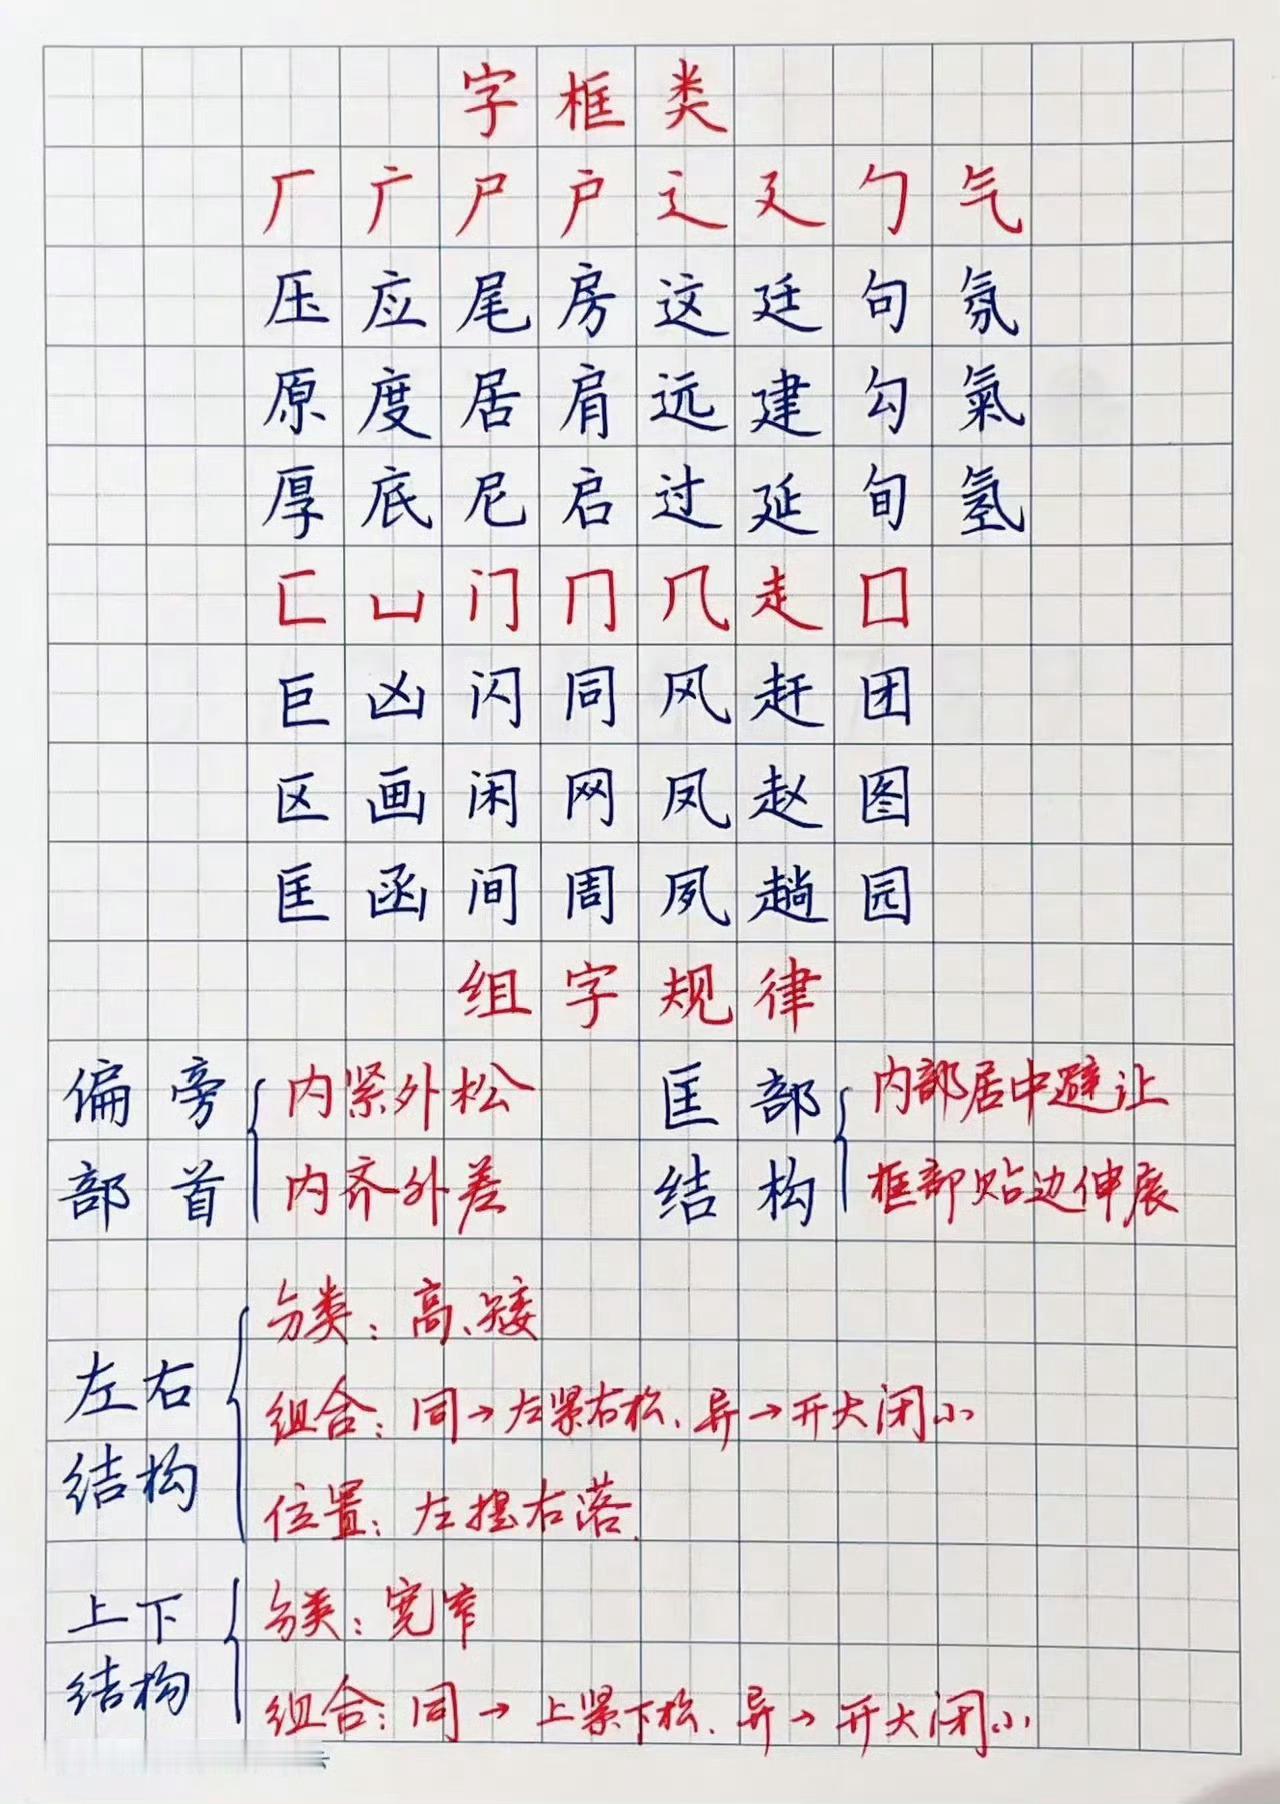 字框类
厂 广 尸 户 辶 廴 勹 气
压 应 尾 房 这 廷 句 氛
原 度 居 肩 远 建 勾 氣
厚 底 尼 启 过 延 旬 氢
匚 凵 门 冂 几 走 囗
巨 凶 闪 同 风 赶 团
区 画 闲 网 凤 赵 图
匡 函 间 周 夙 趟 园
组字规律
偏旁部首
内紧外松
内齐外差
匡部结构
内部居中避让
框部贴边伸展
左右结构
分类：高、矮
组合：同→左紧右松、异→开大闭小
位置：左提右落.
上下结构
分类：宽窄
组合：同→上紧下松、异→开大闭小